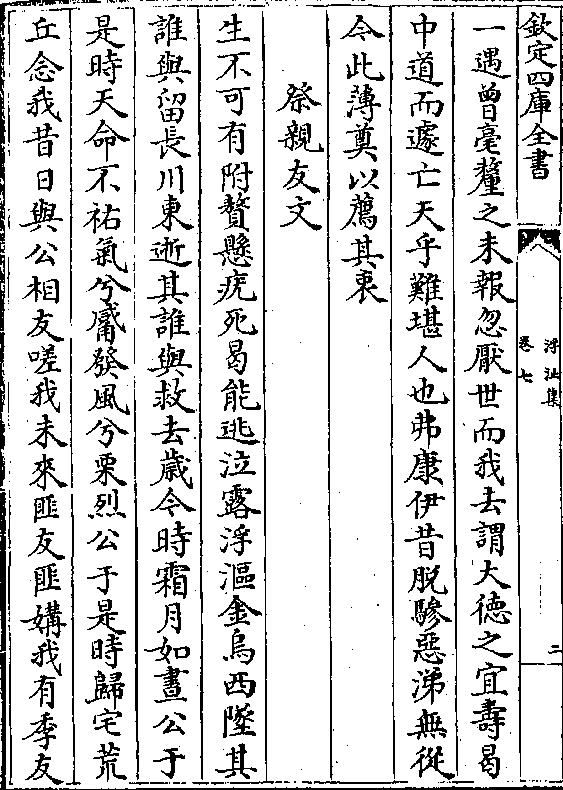 欽定四庫全書
浮沚集
卷七
二
一遇曾毫釐之未報忽厭世而我去謂大德之宜壽曷
中道而遽亡天乎難堪人也弗康伊昔脱驂惡涕無從
今此薄奠以薦其衷
祭親友文
生不可有附贅懸疣死曷能逃泣露浮漚金烏西墜其
誰與留長川東逝其誰與救去歲令時霜月如晝公于
是時天命不祐氣兮觱發風兮栗烈公于是時歸宅荒
丘念我昔日與公相友嗟我未來匪友匪媾我有季友